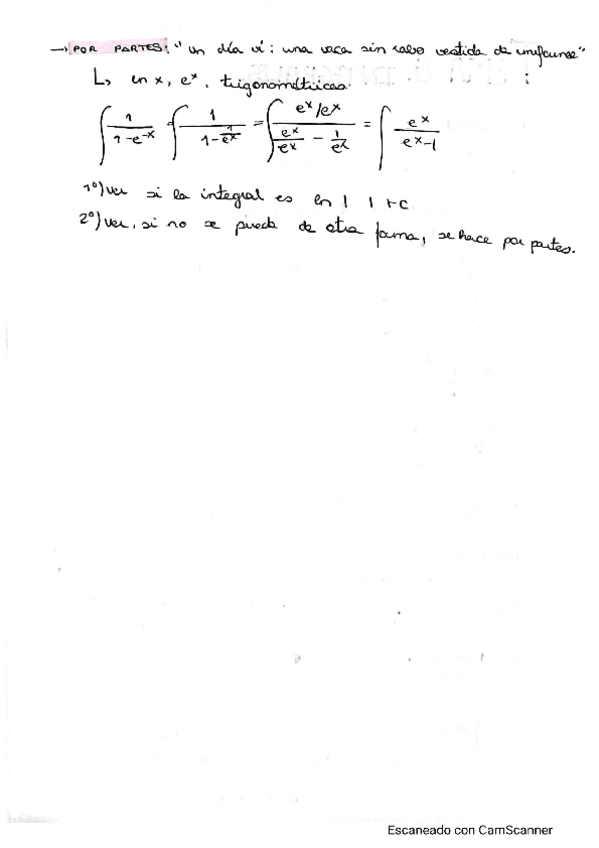 → POR PARTES: "un día vi: una vaca sin rabo vestida de uniforme"
↳ ln x, e^x, trigonométricas.
∫ 1/(1-e^-x) = ∫ 1/(1-1/e^x) = ∫ (e^x/e^x)/(e^x/e^x - 1/e^x) = ∫ e^x/(e^x-1)
1º) ver si la integral es ln | | +C
2º) ver, si no se puede de otra forma, se hace por partes.
Escaneado con CamScanner